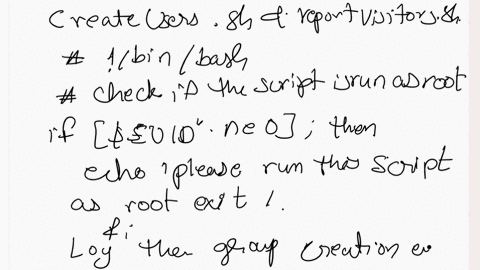 CreateUsers.sh & reportVisitors.sh
# !/bin/bash
# check if the script is run as root
if [$EUID" -ne 0]; then
echo 'please run this script
as root exit 1.
fi
Log then group creation